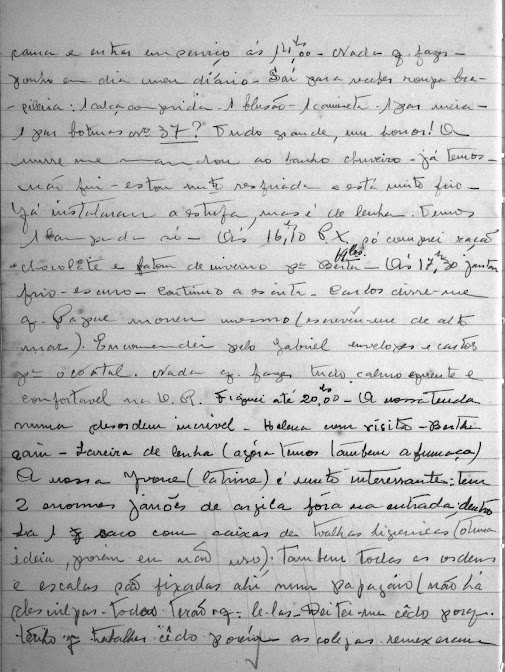 cama e entrar em serviço ás 14,00 - Nada q. fazer -
ponho em dia meu diário - Saí para receber roupa bra-
- sileira: 1 calça comprida - 1 blusão - 1 camiseta - 1 par meia -
1 par botinas nº 37? Tudo grande, um horror! A
nurse me mandou ao banho chuveiro - já temos -
não fui - estou mto resfriada e está muito frio -
Já instalaram a estufa, mas é de lenha. Temos
1 lampada só - Ás 16,10 P.X. só comprei ração
chocolate e de inverno pª Bertha - Ás 17,30 jantar
frio - escuro - Continuo a escrita - Carlos disse-me
q. morreu mesmo (escreveu-me de alto
mar). Encomendei pelo Gabriel envelopes e cartões
pª o Natal. Nada q. fazer tudo calmo quente e
confortavel na Fiquei até 20,00 - A nossa tenda
numa desordem incrivel - Helena com visita - Berthi
- Lareira de lenha (agóra temos tambem a fumaça)
A nossa Yvone (latrina) é muito interessante: tem
2 enormes jarrões de argila fóra na entrada, dentro
1 saco com caixas de toalhas higienicas (otima
ideia, porém eu não uso). Tambem todas as ordens
e escalas são fixadas ahí num papagaio (não há
desculpas - todas terão q. le-las - Deitei-me cêdo porq.
tenho q. trabalhar cêdo porém as colegas remexeram